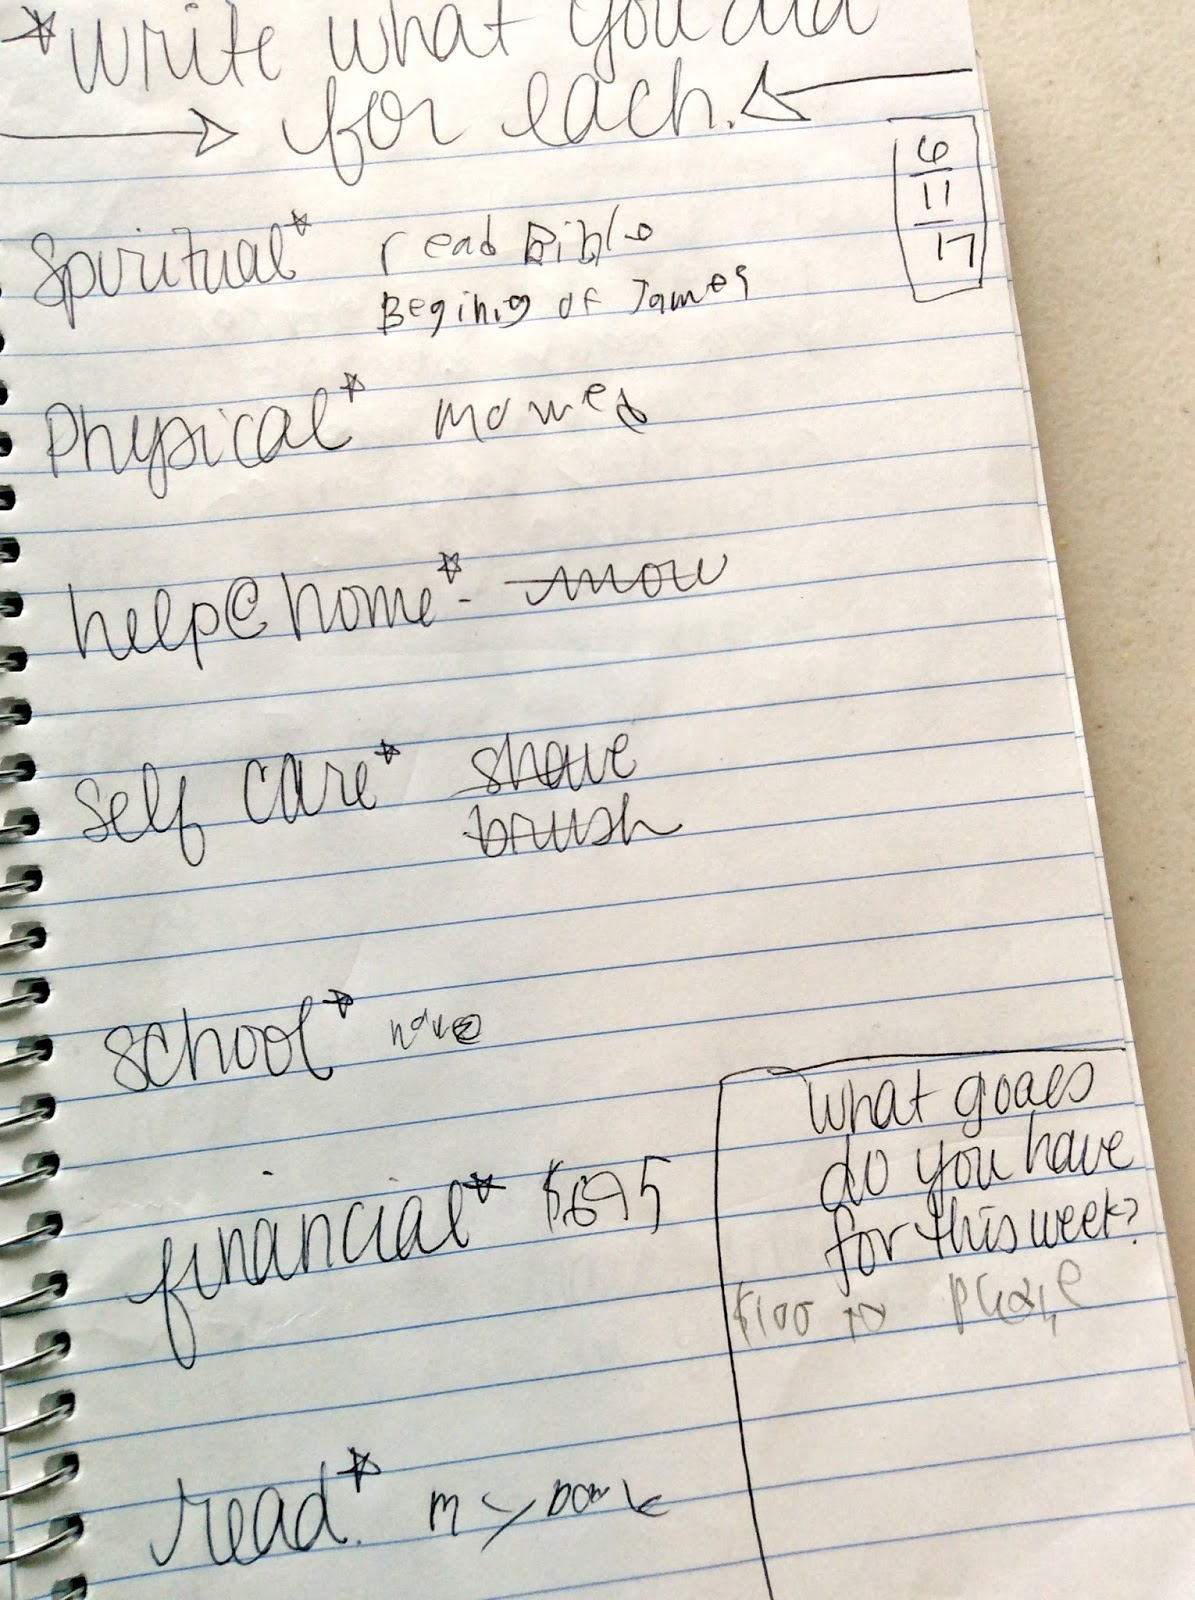 *write what you did
for each.
6
11
17
Spiritual* read Bible
Begining of James
Physical* mowed
help@home*- mow
Self care* shave
brush
school* none
financial* $695
What goals
do you have
for this week?
$100 to
read. * my book